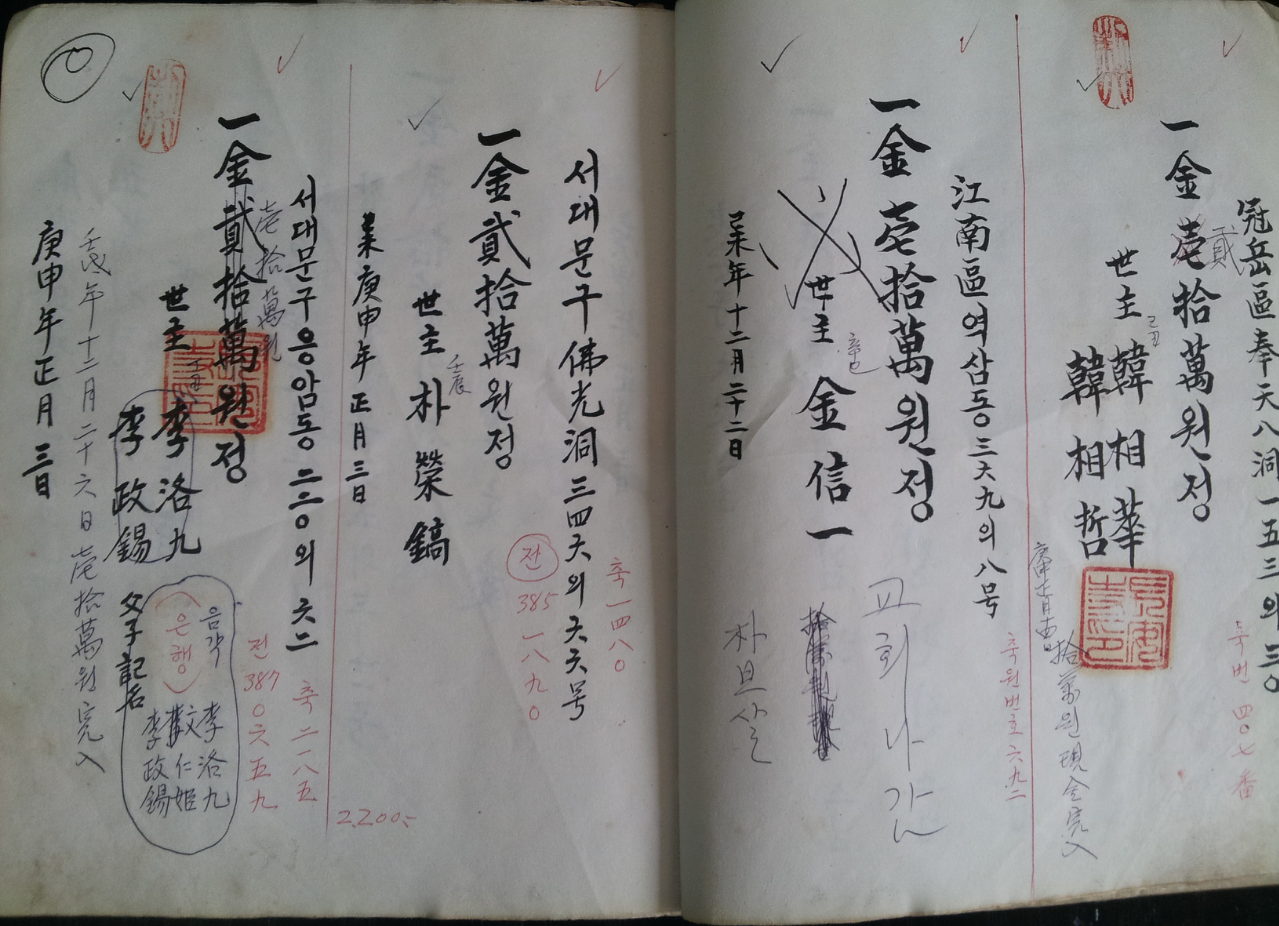 冠岳區奉天八洞一五三의三０
축번四０七番
一金壱拾萬원정
貳
世主韓相華
己丑
韓相哲
拾萬원現金完入
축원번호六九二
江南區역삼동三六九의八号
一金壱拾萬원정
교회나감
世主金信一
辛巳
己未年十二月二十二日
朴보살
축一四八０
서대문구佛光洞三四六의六六号
一金貳拾萬원정
전
385
一八九０
世主朴榮鎬
壬辰
庚申年正月三日
2,200
축二一八五
서대문구응암동二二０의六二
전
387
０六五九
壱拾萬원
一金貳拾萬원정
世主李洛九
丁丑
李政錫
父子記名
음각李洛九
(은행)文仁姬
李政錫
壬戌年十二月二十六日壱拾萬원完入
庚申年正月三日